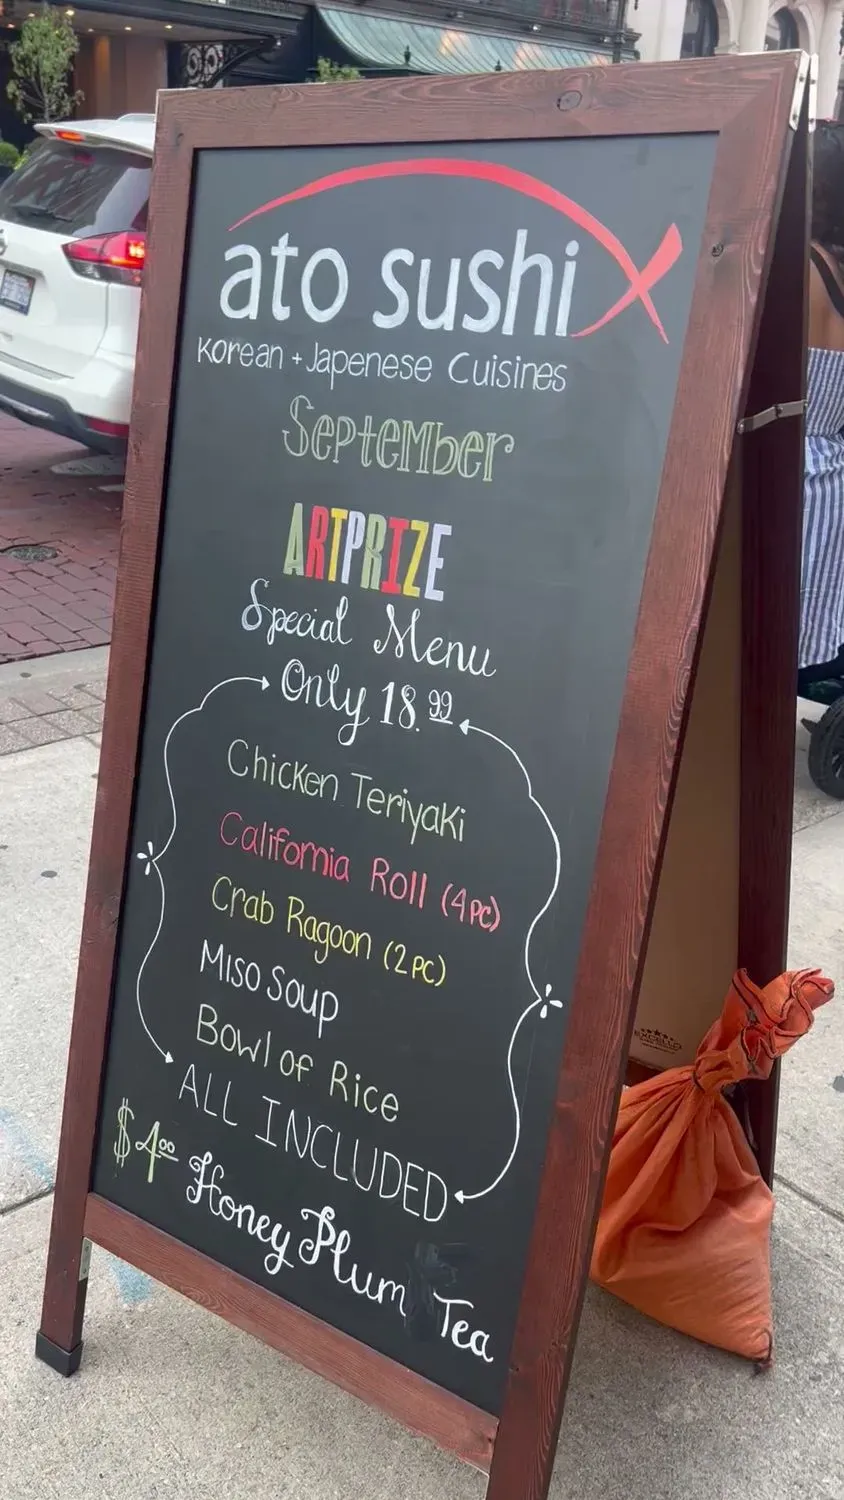 ato sushi
Korean + Japenese Cuisines
September
ARTPRIZE
Special Menu
Only 18.99
Chicken Teriyaki
California Roll (4pc)
Crab Ragoon (2pc)
Miso Soup
Bowl of Rice
ALL INCLUDED
$4.00 Honey Plum Tea
EXCELLO